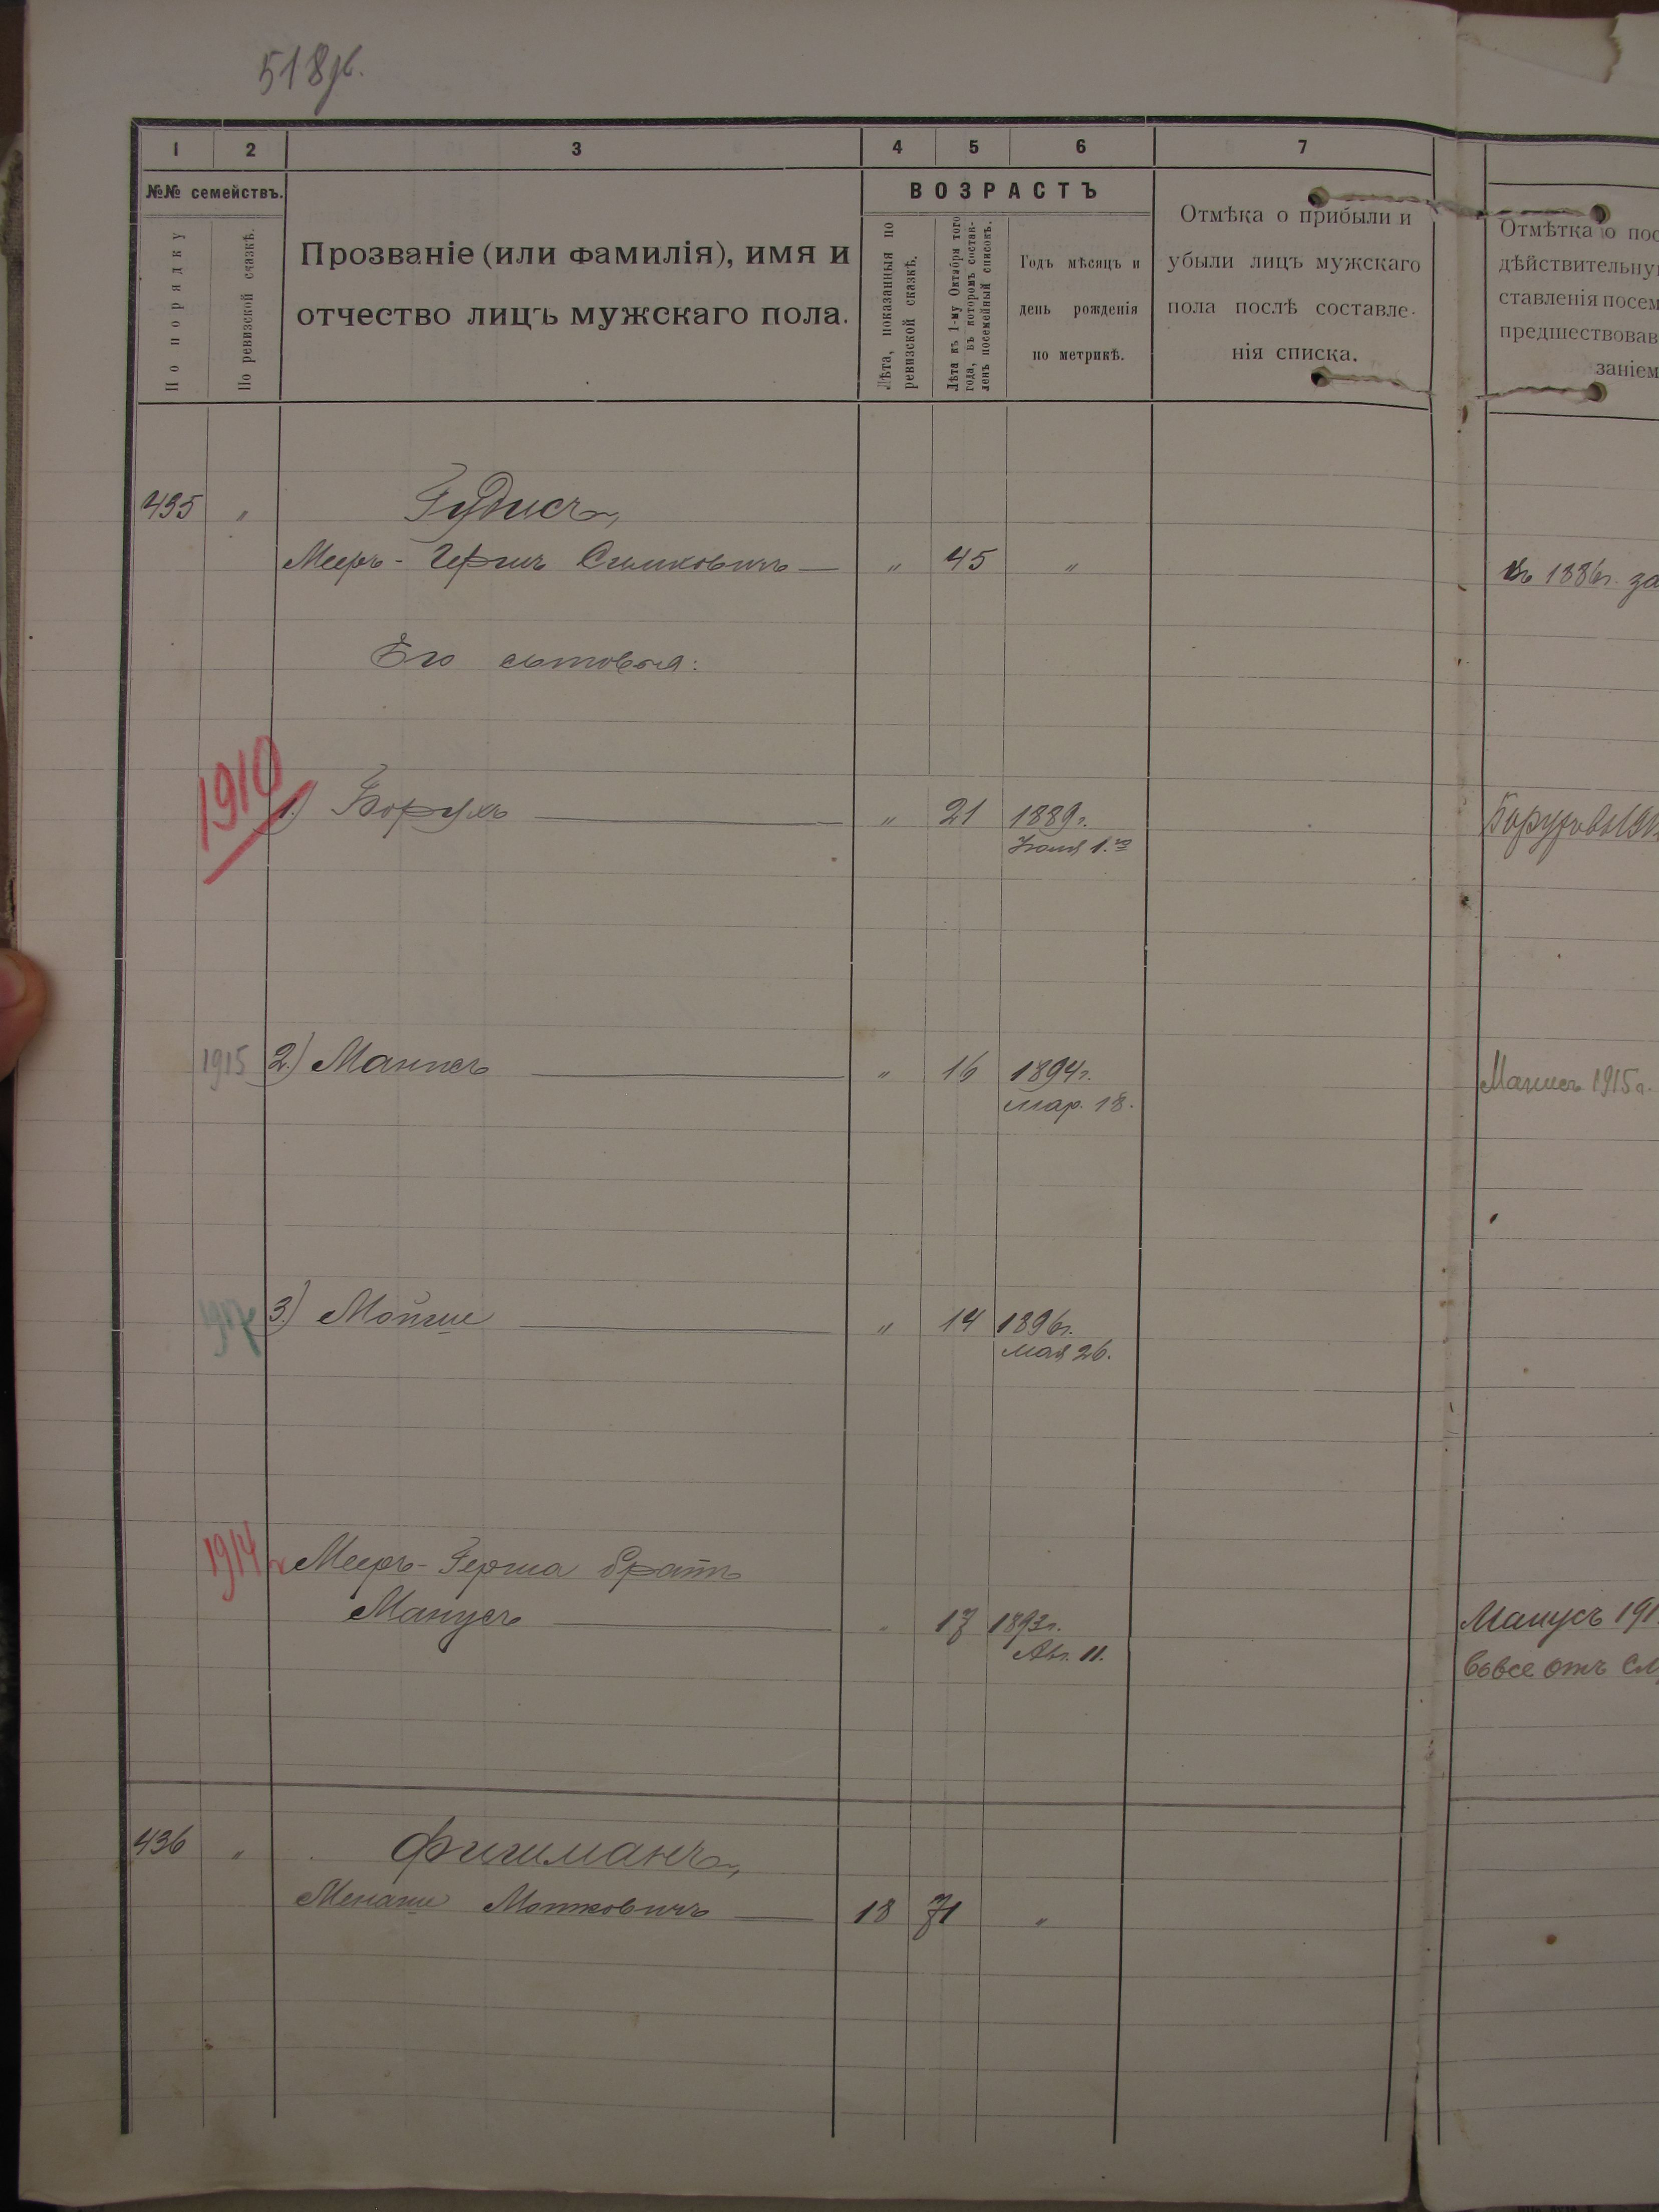 518 б.
1 2 3 4 5 6 7
№№ семействъ.
По порядку
По ревизской сказкѣ.
Прозваніе (или фамилія), имя и
отчество лицъ мужскаго пола.
ВОЗРАСТЪ
Лѣта, показанныя по
ревизской сказкѣ.
Лѣта къ 1-му Октября того
года, въ которомъ состав-
ленъ посемейный списокъ.
Годъ мѣсяцъ и
день рожденія
по метрикѣ.
Отмѣка о прибыли и
убыли лицъ мужскаго
пола послѣ составле-
нія списка.
Отмѣтка о пос
дѣйствительну
ставленія посем
предшествовав
заніем
435 " Гудисъ,
Мееръ-Гершъ Симковичъ — " 45 " въ 1886г. за
Его сыновья:
1910 1.) Борухъ — " 21 1889г.
Іюля 1.го
Борухъ 191
1915 2.) Манисъ — " 16 1894г. Манисъ 1915г.
мар. 18.
1917 3.) Мойше — " 14 1896г.
мая 26.
1914 Мееръ-Герша братъ
Манусъ — " 17 1893г. Манусъ 191
Авг. 11. вовсе отъ сл
436 " Фишманъ,
Менаше Мотковичъ — 18 71 "